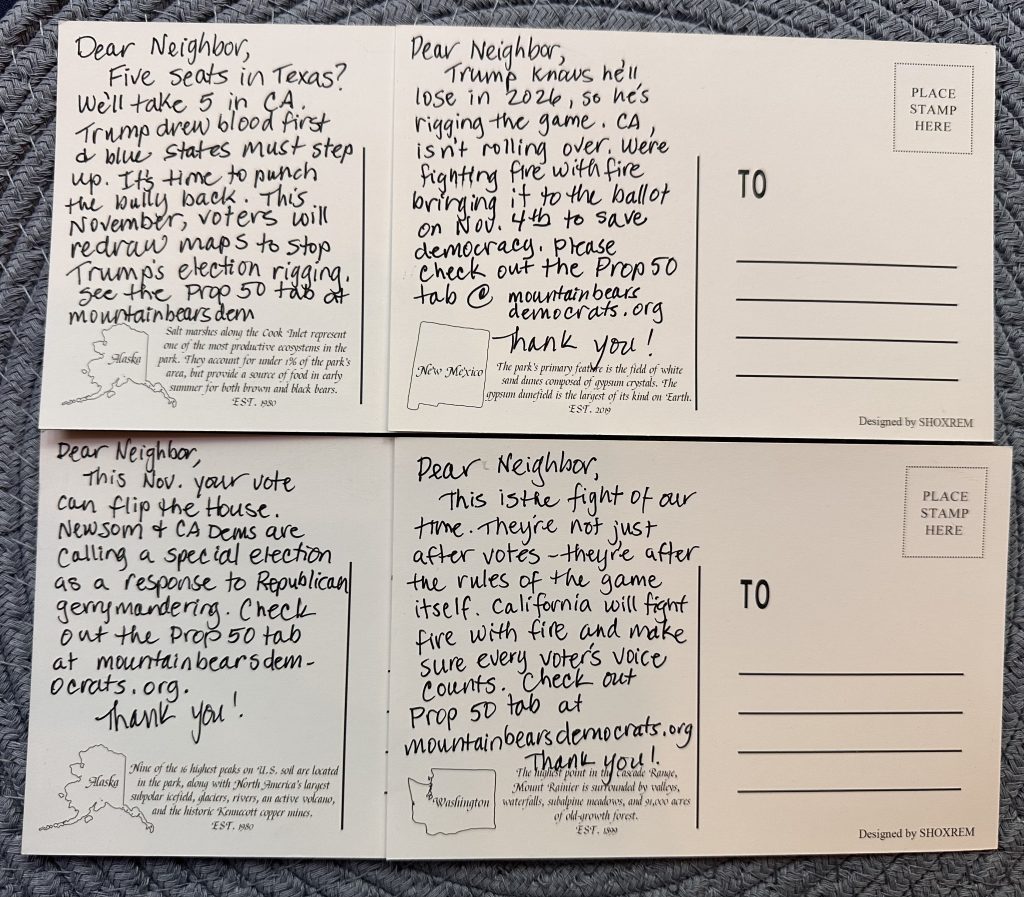 Dear Neighbor,
Five seats in Texas?
We'll take 5 in CA.
Trump drew blood first
& blue states must step
up. It's time to punch
the bully back. This
November, voters will
redraw maps to stop
Trump's election rigging.
See the Prop 50 tab at
mountainbearsdem
Alaska
Salt marshes along the Cook Inlet represent
one of the most productive ecosystems in the
park. They account for under 1% of the park's
area, but provide a source of food in early
summer for both brown and black bears.
EST. 1980
Dear Neighbor,
Trump knows he'll
lose in 2026, so he's
rigging the game. CA,
isn't rolling over. We're
fighting fire with fire
bringing it to the ballot
on Nov. 4th to save
democracy. Please
check out the Prop 50
tab @ mountainbears
democrats.org
Thank you!
New Mexico
The park's primary feature is the field of white
sand dunes composed of gypsum crystals. The
gypsum dunefield is the largest of its kind on Earth.
EST. 2019
PLACE
STAMP
HERE
TO
Designed by SHOXREM
Dear Neighbor,
This Nov. your vote
can flip the House.
Newsom & CA Dems are
calling a special election
as a response to Republican
gerrymandering. Check
out the Prop 50 tab
at mountainbearsdem-
ocrats.org.
Thank you!
Alaska
Nine of the 16 highest peaks on U.S. soil are located
in the park, along with North America's largest
subpolar icefield, glaciers, rivers, an active volcano,
and the historic Kennecott copper mines.
EST. 1980
Dear Neighbor,
This is the fight of our
time. They're not just
after votes - they're after
the rules of the game
itself. California will fight
fire with fire and make
sure every voter's voice
counts. Check out
Prop 50 tab at
mountainbearsdemocrats.org
Thank you!
Washington
The highest point in the Cascade Range,
Mount Rainier is surrounded by valleys,
waterfalls, subalpine meadows, and 91,000 acres
of old-growth forest.
EST. 1899
PLACE
STAMP
HERE
TO
Designed by SHOXREM